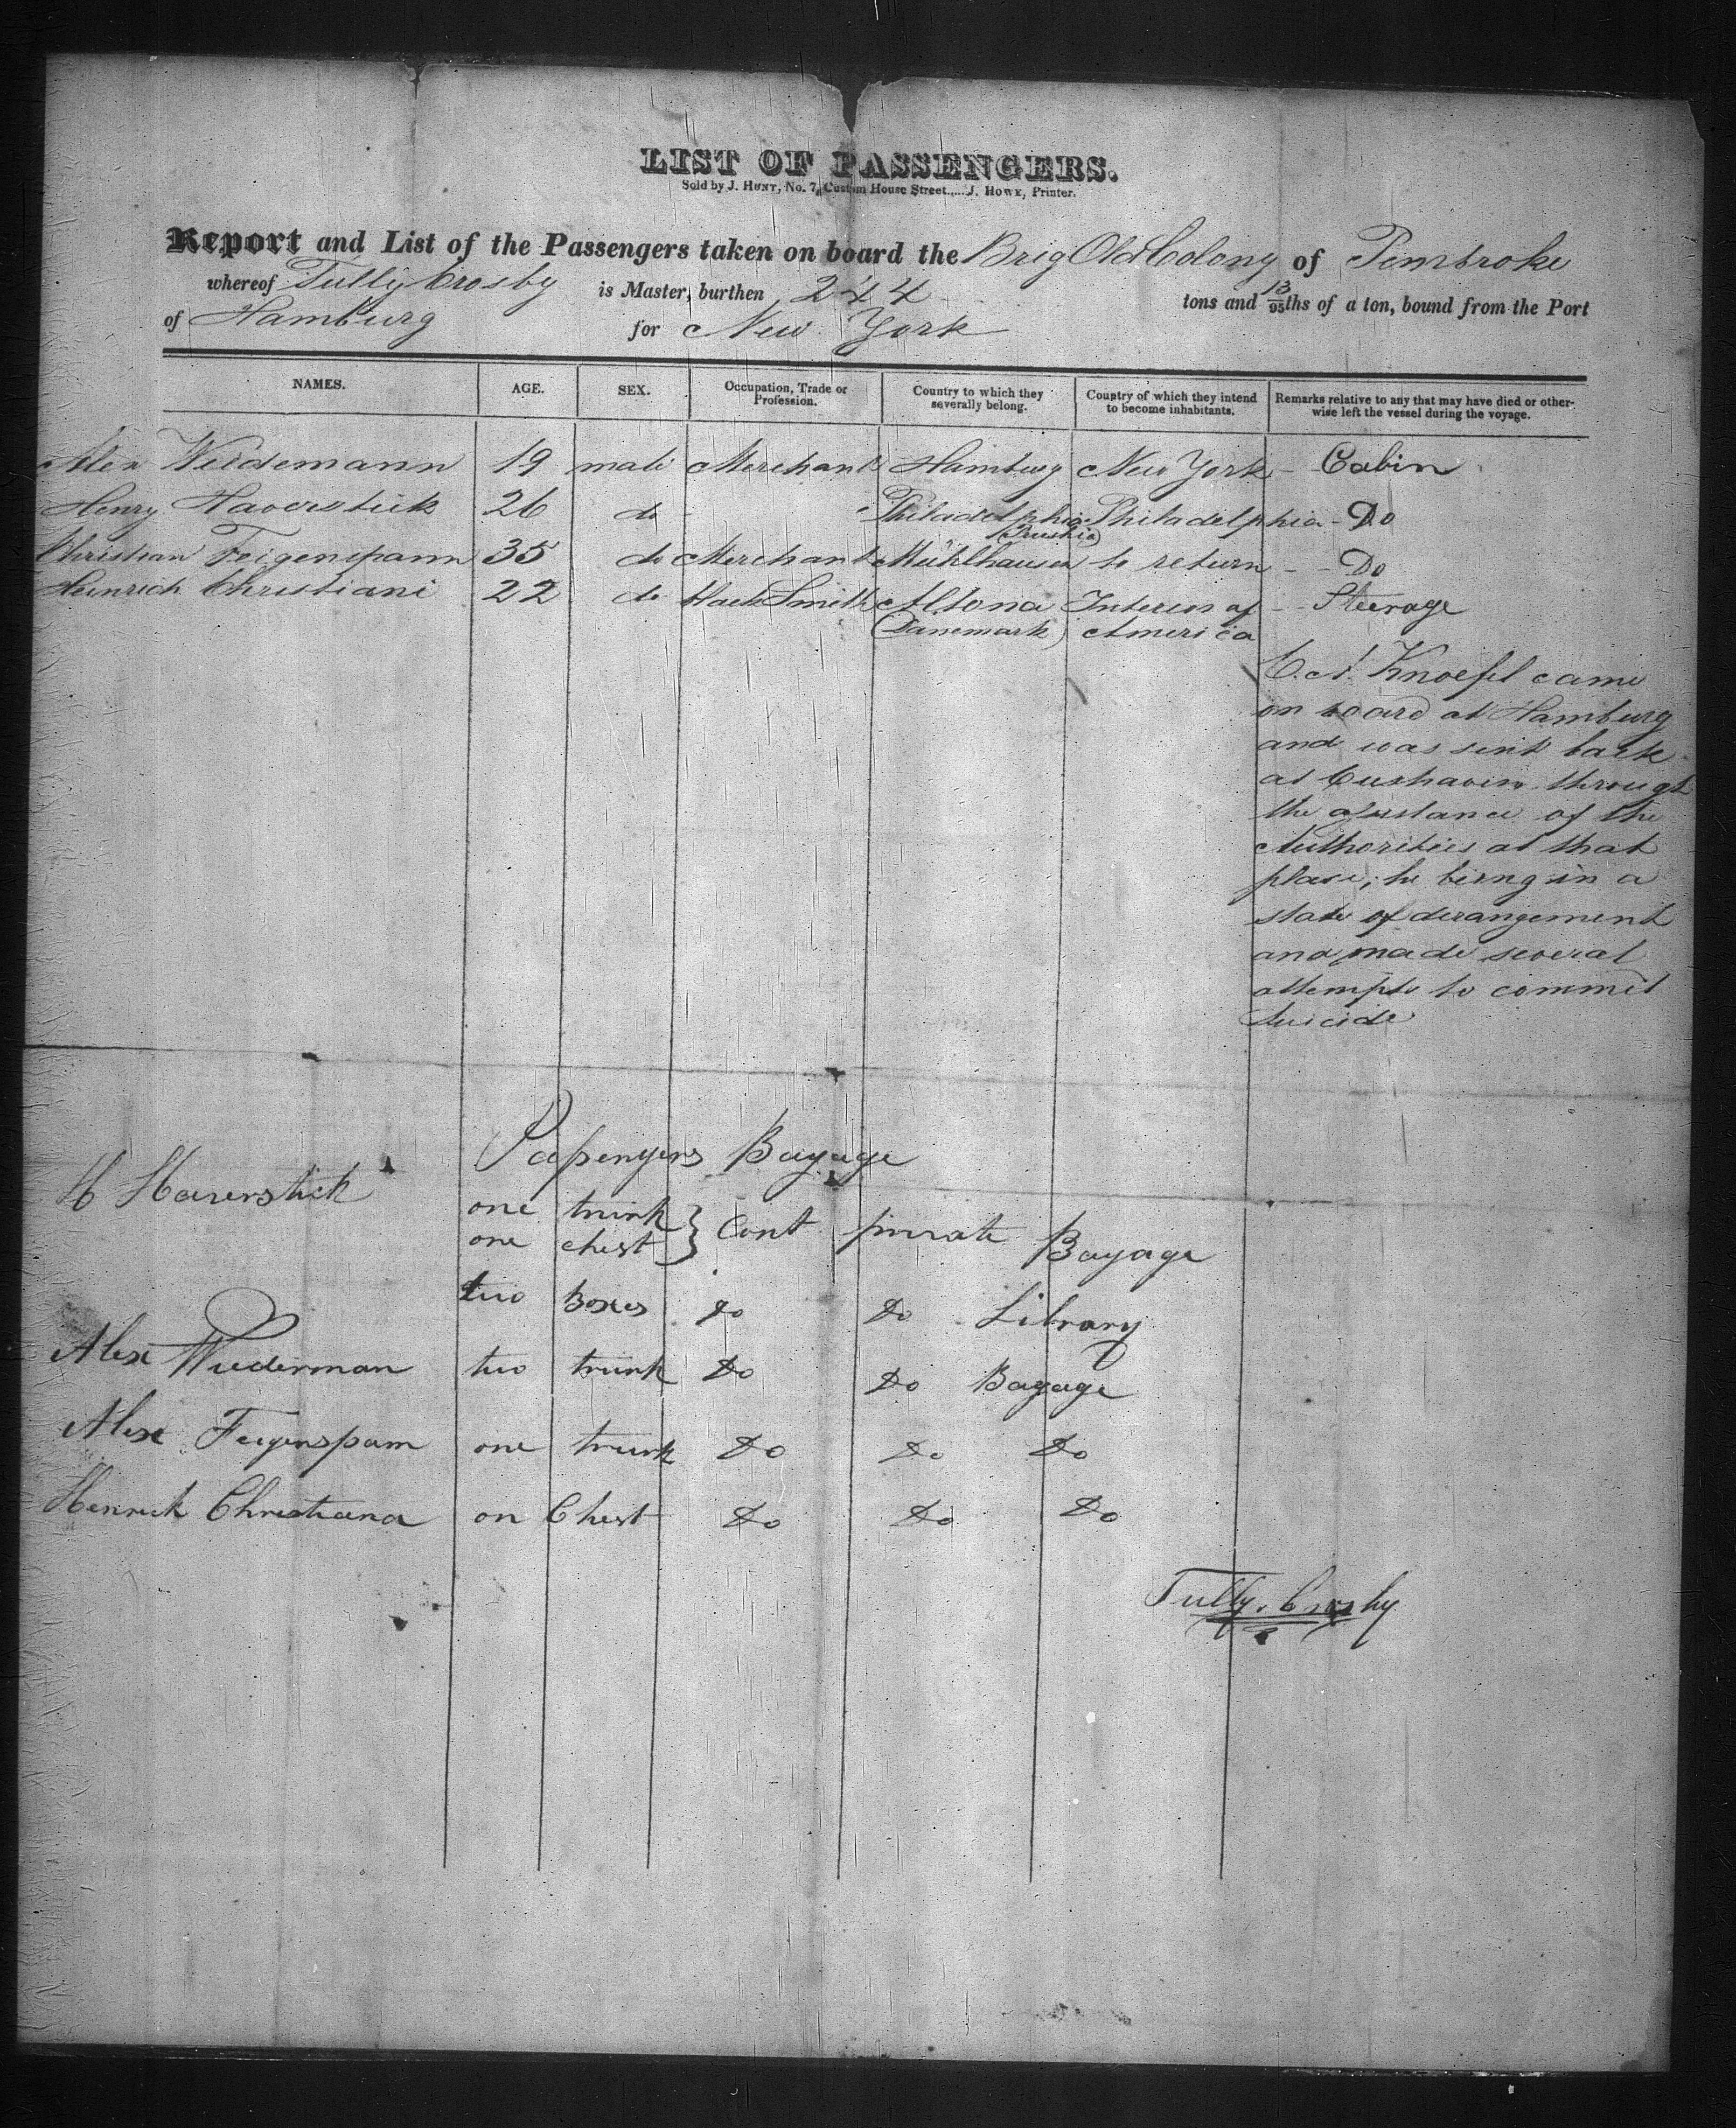 LIST OF PASSENGERS.
Sold by J. HUNT, No. 7, Custom House Street.....J. HOWE, Printer.
Report and List of the Passengers taken on board the Brig Old Colony of Pembroke
whereof Tully Crosby is Master, burthen 244 tons and 13/95ths of a ton, bound from the Port
of Hamburg for New York
NAMES. AGE. SEX. Occupation, Trade or Profession. Country to which they severally belong. Country of which they intend to become inhabitants. Remarks relative to any that may have died or otherwise left the vessel during the voyage.
Alex Wiedemann 19 male Merchant Hamburg New York - Cabin
Henry Haverstick 26 do - Philadelphia Philadelphia - Do
Christian Feigenspann 35 do Merchant Mühlhausen (Prushia) to return - - Do
Heinrich Christiani 22 do Smith Altona Interior of - - Steerage
(Danemark) America
C. A. Knoefel came
on board at Hamburg
and was sent back
at Cuxhaven through
the assistance of the
Authorities at that
place; he being in a
state of derangement
and made several
attempts to commit
Suicide
Passengers Bagage
H Haverstick one trunk } Cont private Bagage
one chest
two Boxes Do Do Library
Alex Wiederman two trunk Do Do Bagage
Alex Feigenspam one trunk Do Do Do
Henrick Christiana on Chest Do Do Do
Tully. Crosby